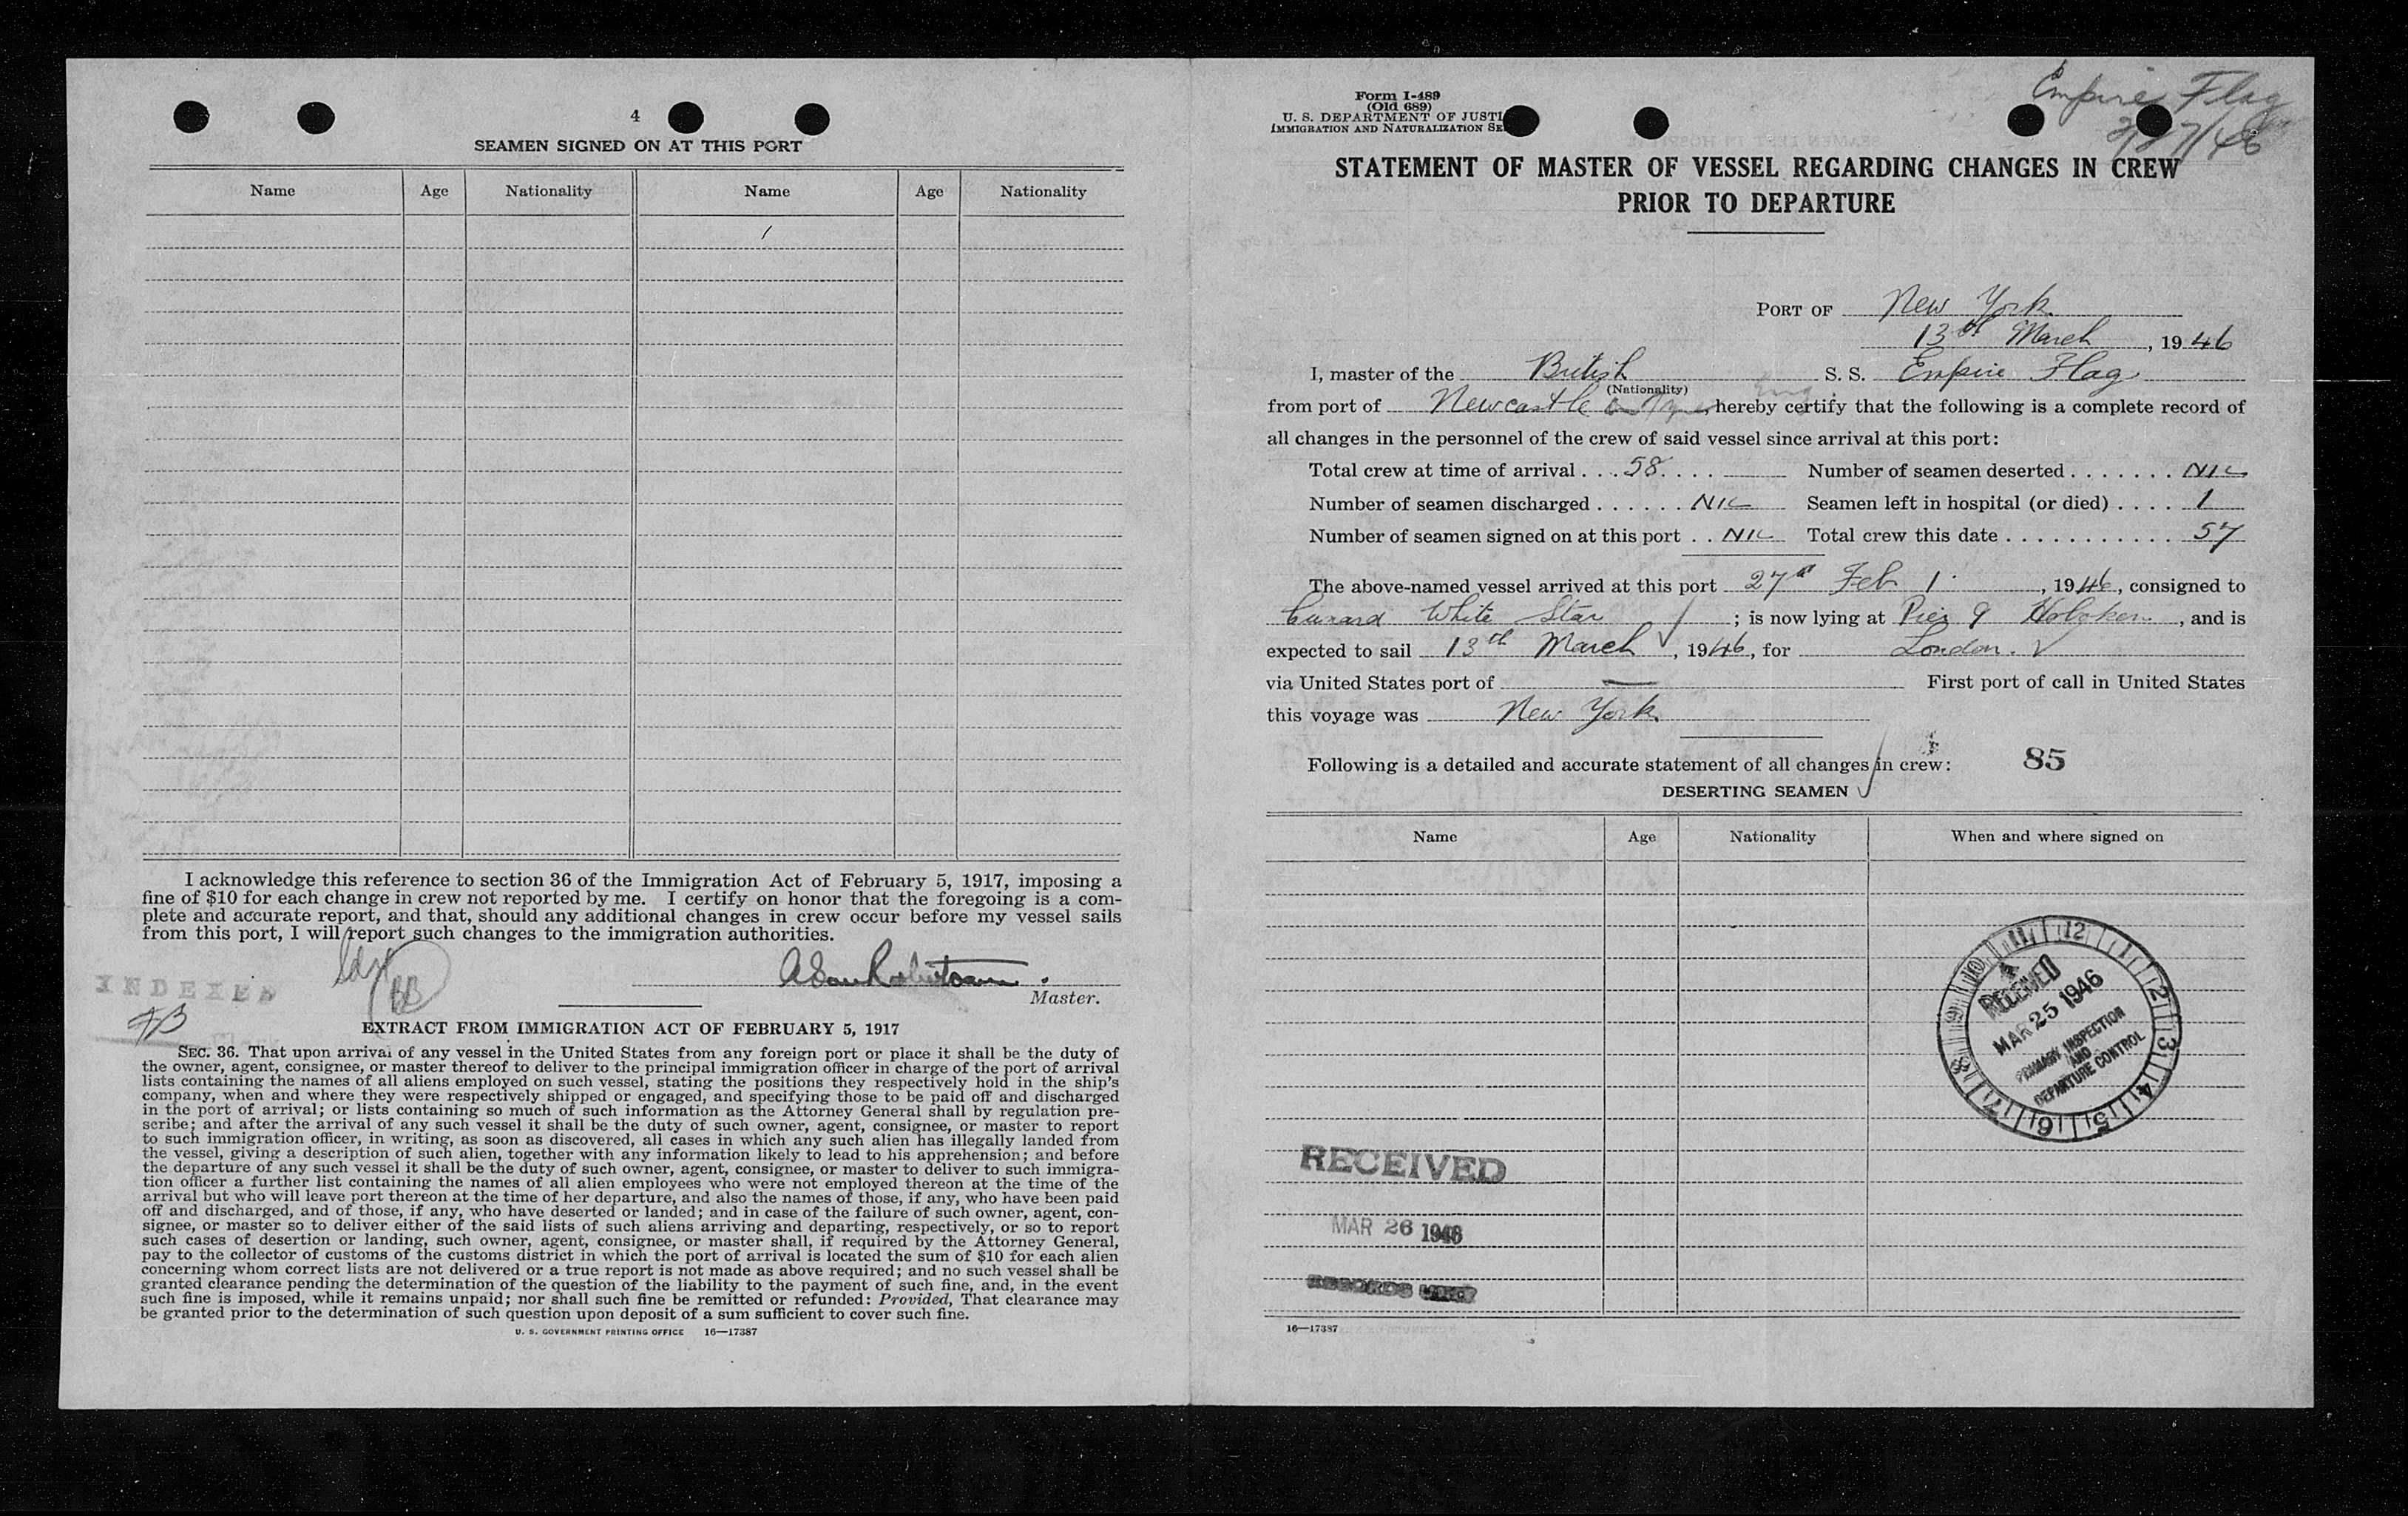 4
SEAMEN SIGNED ON AT THIS PORT
Name Age Nationality Name Age Nationality
I acknowledge this reference to section 36 of the Immigration Act of February 5, 1917, imposing a
fine of $10 for each change in crew not reported by me. I certify on honor that the foregoing is a com-
plete and accurate report, and that, should any additional changes in crew occur before my vessel sails
from this port, I will report such changes to the immigration authorities.
INDEXED
Master.
EXTRACT FROM IMMIGRATION ACT OF FEBRUARY 5, 1917
SEC. 36. That upon arrival of any vessel in the United States from any foreign port or place it shall be the duty of
the owner, agent, consignee, or master thereof to deliver to the principal immigration officer in charge of the port of arrival
lists containing the names of all aliens employed on such vessel, stating the positions they respectively hold in the ship's
company, when and where they were respectively shipped or engaged, and specifying those to be paid off and discharged
in the port of arrival; or lists containing so much of such information as the Attorney General shall by regulation pre-
scribe; and after the arrival of any such vessel it shall be the duty of such owner, agent, consignee, or master to report
to such immigration officer, in writing, as soon as discovered, all cases in which any such alien has illegally landed from
the vessel, giving a description of such alien, together with any information likely to lead to his apprehension; and before
the departure of any such vessel it shall be the duty of such owner, agent, consignee, or master to deliver to such immigra-
tion officer a further list containing the names of all alien employees who were not employed thereon at the time of the
arrival but who will leave port thereon at the time of her departure, and also the names of those, if any, who have been paid
off and discharged, and of those, if any, who have deserted or landed; and in case of the failure of such owner, agent, con-
signee, or master so to deliver either of the said lists of such aliens arriving and departing, respectively, or so to report
such cases of desertion or landing, such owner, agent, consignee, or master shall, if required by the Attorney General,
pay to the collector of customs of the customs district in which the port of arrival is located the sum of $10 for each alien
concerning whom correct lists are not delivered or a true report is not made as above required; and no such vessel shall be
granted clearance pending the determination of the question of the liability to the payment of such fine, and, in the event
such fine is imposed, while it remains unpaid; nor shall such fine be remitted or refunded: Provided, That clearance may
be granted prior to the determination of such question upon deposit of a sum sufficient to cover such fine.
U. S. GOVERNMENT PRINTING OFFICE 16—17387
Empire Flag
2/27/46
Form I-489
(Old 689)
U. S. DEPARTMENT OF JUSTI
IMMIGRATION AND NATURALIZATION SE
STATEMENT OF MASTER OF VESSEL REGARDING CHANGES IN CREW
PRIOR TO DEPARTURE
PORT OF New York
13th March, 1946
I, master of the British S. S. Empire Flag
(Nationality)
from port of Newcastle on Tyne Eng hereby certify that the following is a complete record of
all changes in the personnel of the crew of said vessel since arrival at this port:
Total crew at time of arrival . . . 58 . . . . Number of seamen deserted . . . . . . . NIL
Number of seamen discharged . . . . . . NIL Seamen left in hospital (or died) . . . . 1
Number of seamen signed on at this port . . NIL Total crew this date . . . . . . . . . . . . 57
The above-named vessel arrived at this port 27th Feb, 1946, consigned to
Cunard White Star ; is now lying at Pier 9 Hoboken, and is
expected to sail 13th March, 1946, for London.
via United States port of — First port of call in United States
this voyage was New York
Following is a detailed and accurate statement of all changes in crew: 85
DESERTING SEAMEN
Name Age Nationality When and where signed on
11 12 1 2 3 4 5 6 7 8 9 10
RECEIVED
MAR 25 1946
PRIMARY INSPECTION
AND
DEPARTURE CONTROL
RECEIVED
MAR 26 1946
RECORDS UNIT
16—17387